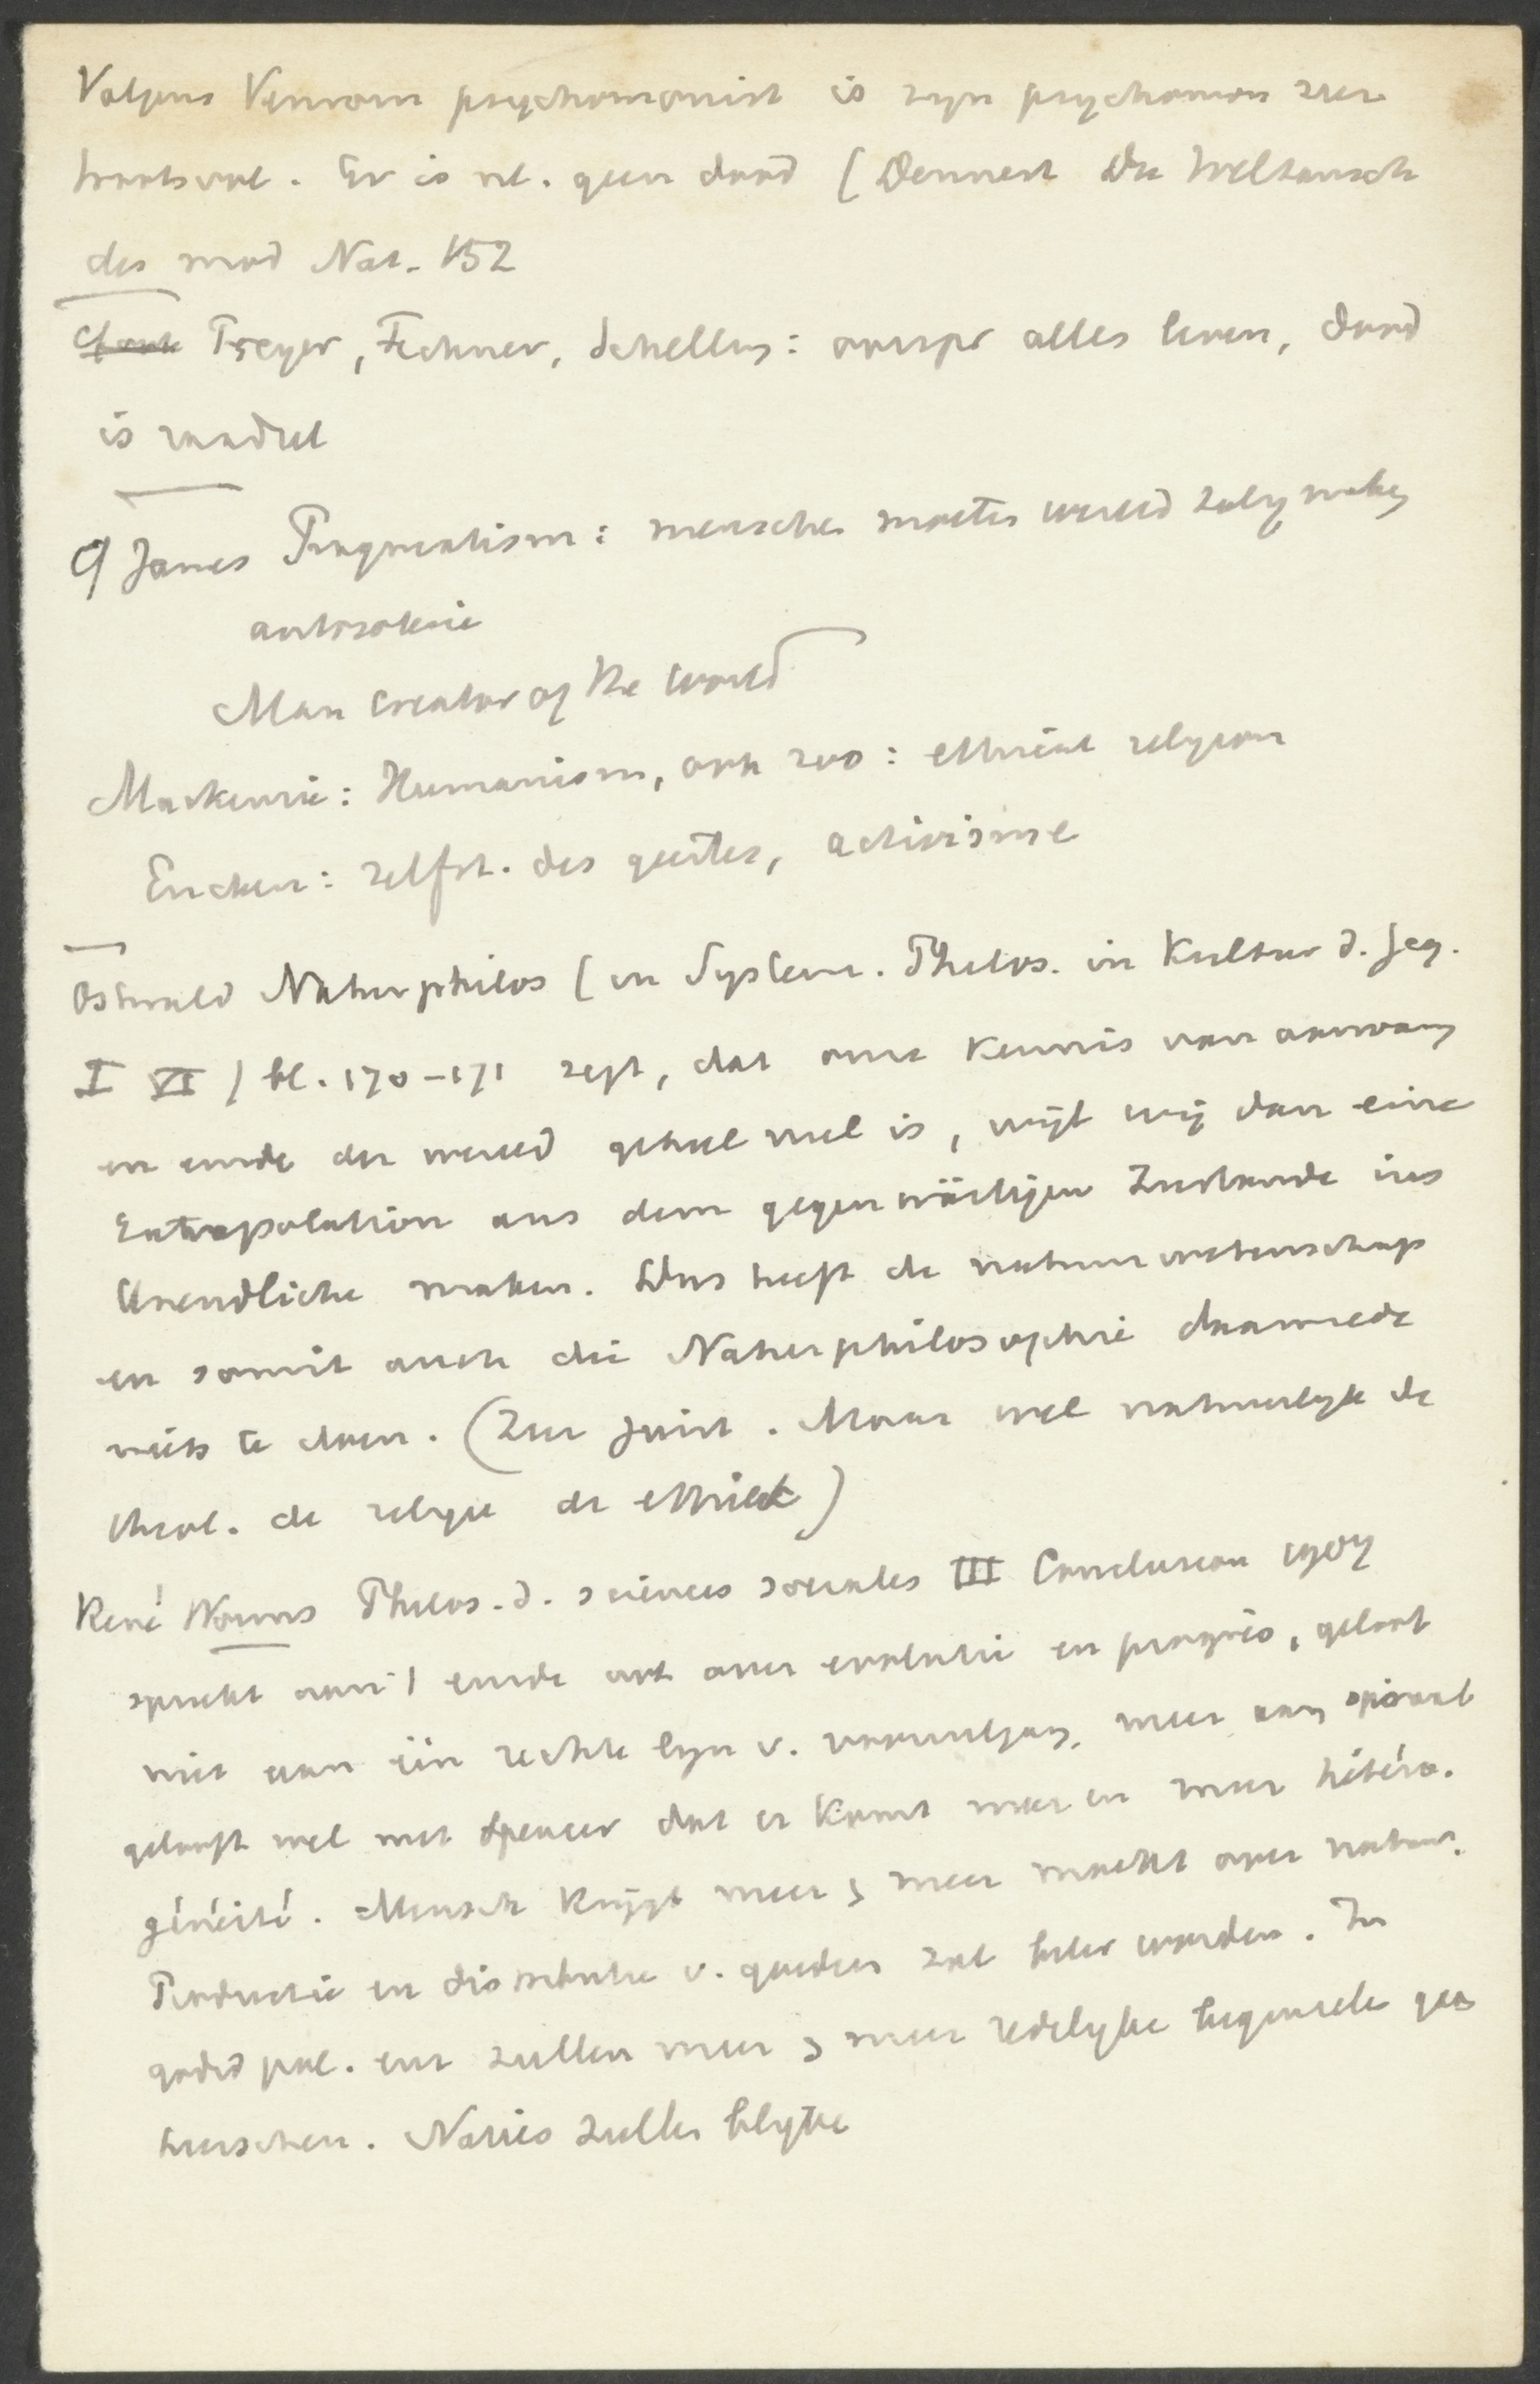 Volgens Verworn psychomonist is zyn psychomon zeer
troostvol. Er is nl. geen dood (Dennert Die Weltansch
des mod Nat. 152
Preyer, Fechner, Schelling: oorspr alles leven, dood
is raadsel
Cf James Pragmatism: menschen moeten wereld zalig maken
autosoterie
Man creator of the world
Mackenzie: Humanism, ook zoo: ethical religion
Eucken: zelfst. des geestes, activisme
Ostwald Naturphilos (in System. Philos. in Kultur d. Geg.
I VI) bl. 170-171 zegt, dat onze kennis van aanvang
en einde der wereld geheel nul is, wijl wij dan eine
Extrapolation aus dem gegenwärtigen Zustande ins
Unendliche maken. Dus heeft de natuurwetenschap
en somit auch die Naturphilosophie daarmede
niets te doen. (Zeer juist. Maar wel natuurlyk de
theol. de religie de ethiek)
René Worms Philos. d. sciences sociales III Conclusion 1907
spreekt aan 't einde ook over evolutie en progrès, gelooft
niet aan één rechte lyn v. vooruitgang, meer aan spiraal
gelooft wel met Spencer dat er komt meer en meer hétéro-
généité. Mensch krijgt meer & meer macht over natuur.
Productie en distributie v. goederen zal beter worden. In
godsd pol. enz zullen meer & meer redelyke beginselen gaan
heerschen. Naties zullen blyven